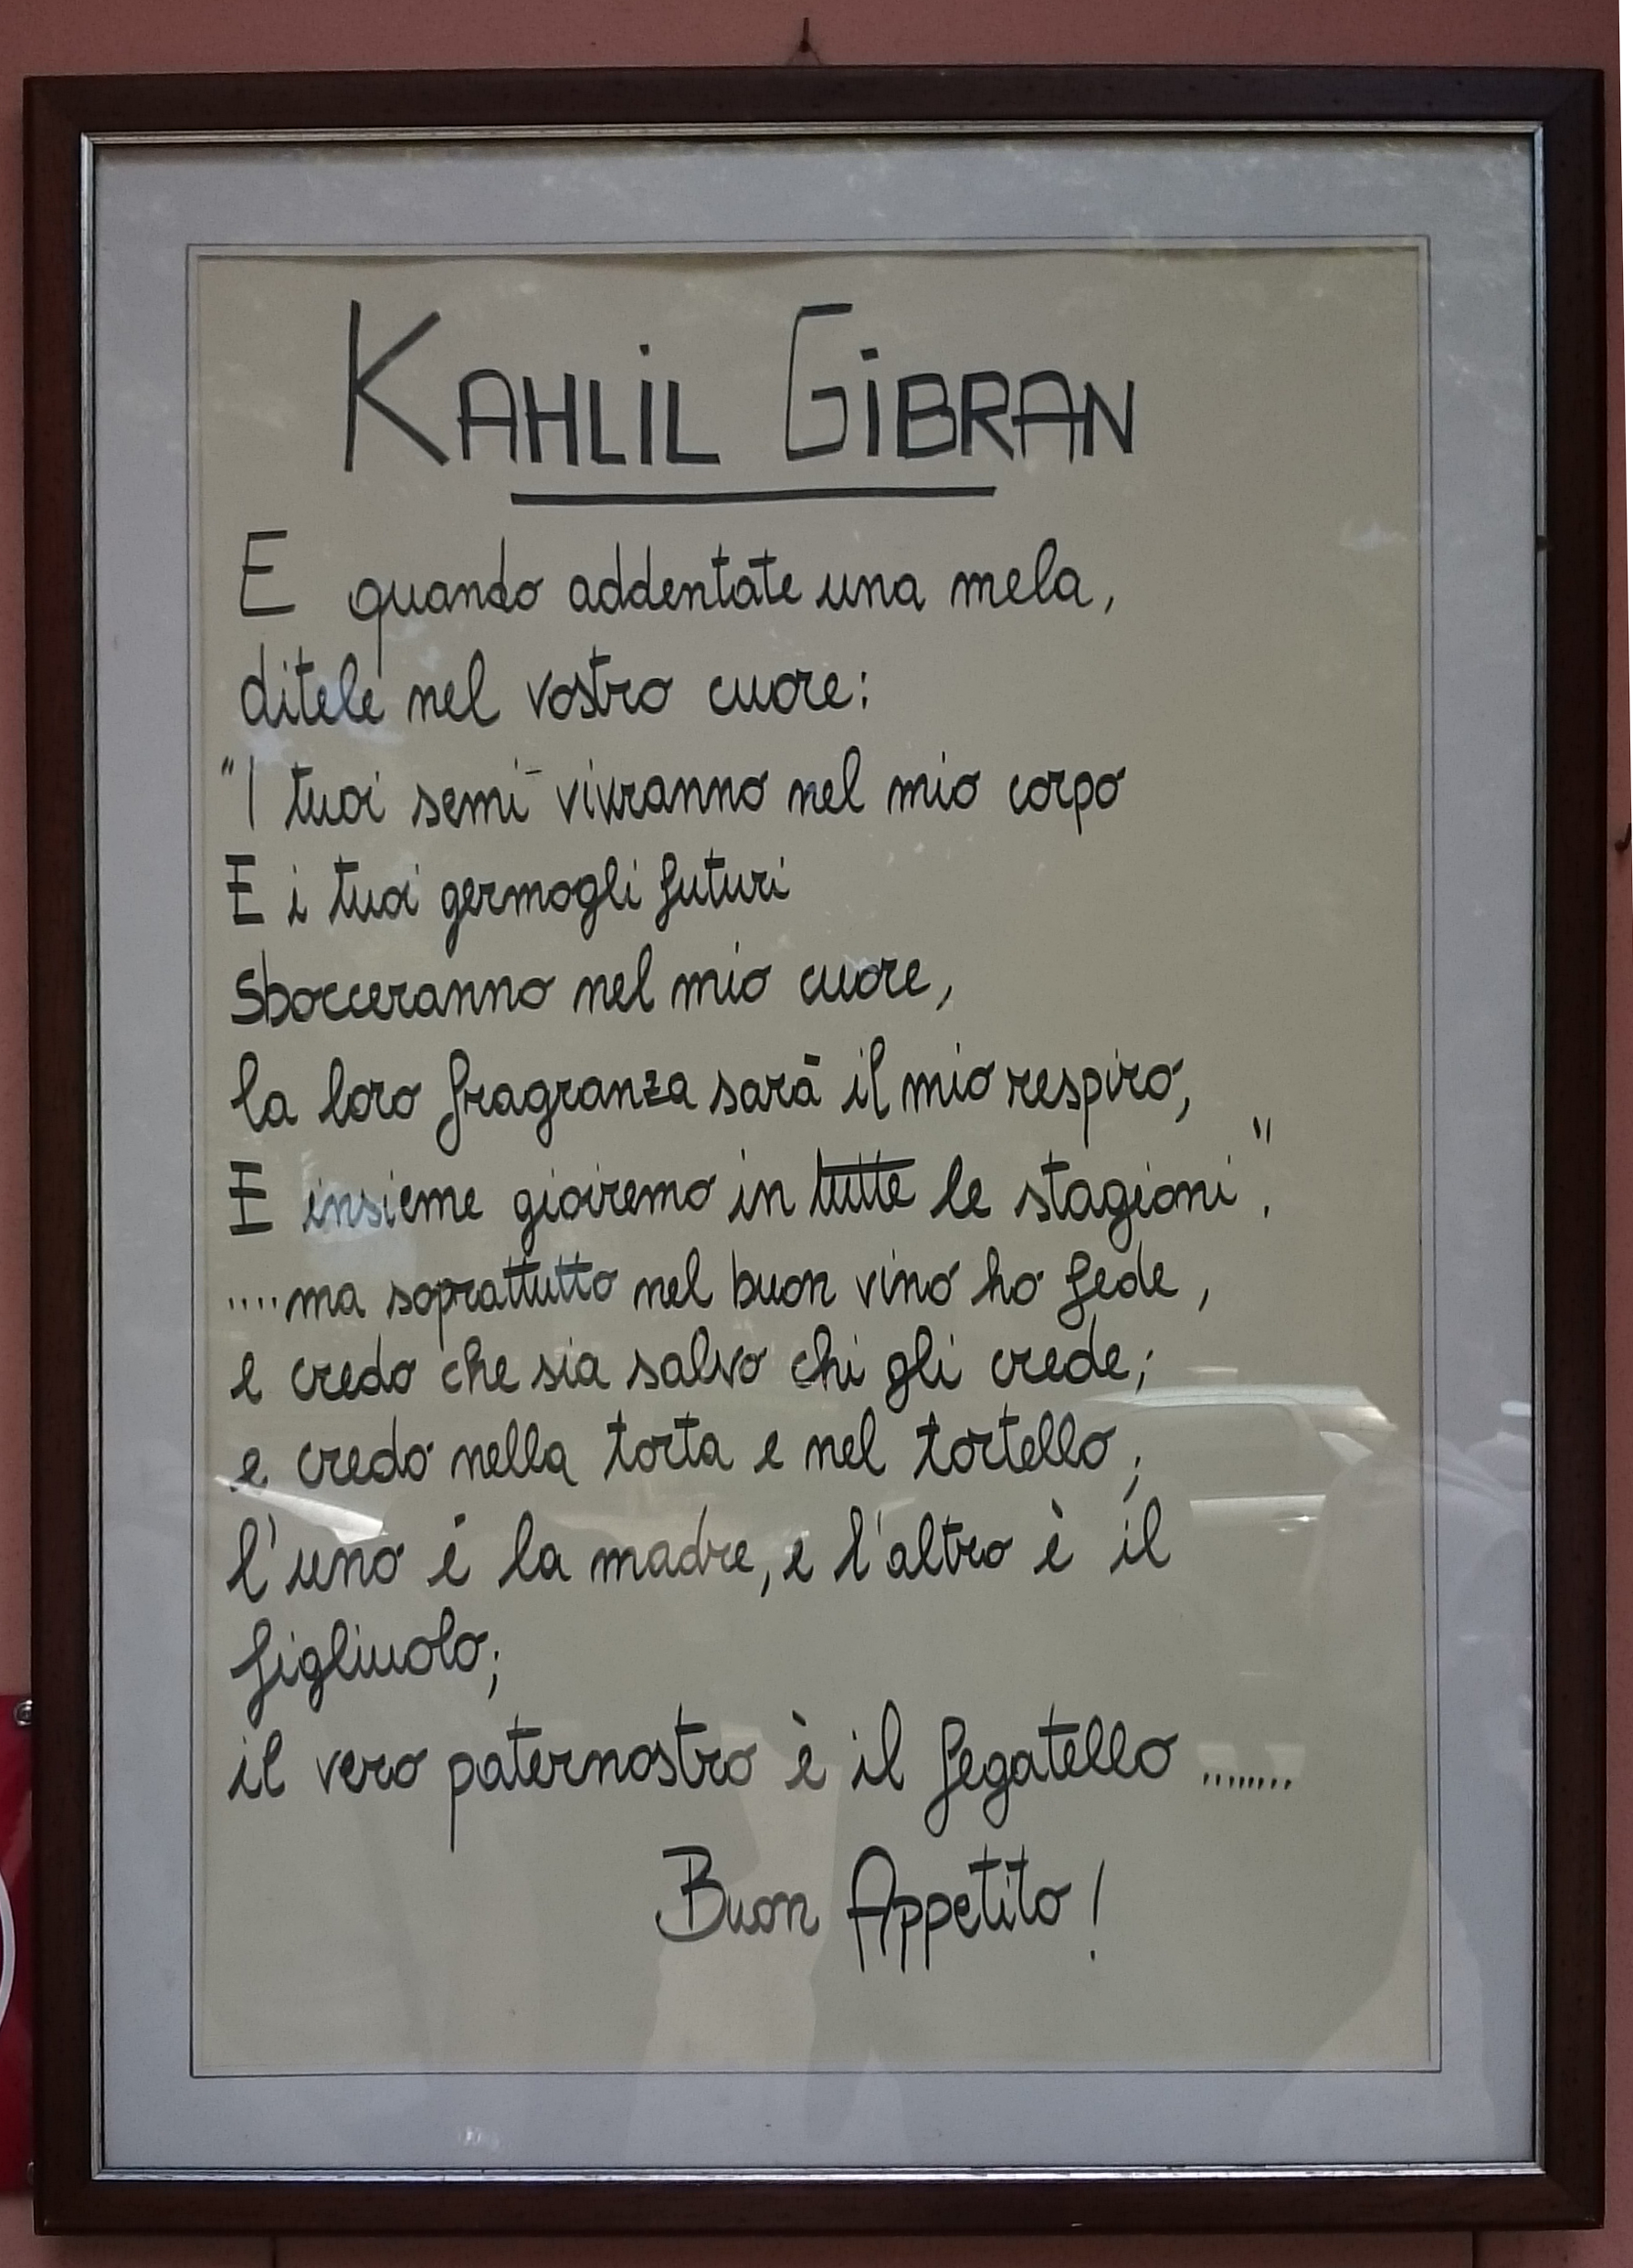 KAHLIL GIBRAN
E quando addentate una mela,
ditele nel vostro cuore:
"I tuoi semi vivranno nel mio corpo
E i tuoi germogli futuri
Sbocceranno nel mio cuore,
la loro fragranza sarà il mio respiro,
E insieme gioiremo in tutte le stagioni".
....ma soprattutto nel buon vino ho fede,
e credo che sia salvo chi gli crede;
e credo nella torta e nel tortello;
l'uno è la madre, e l'altro è il
figliuolo;
il vero paternostro è il fegatello ........
Buon Appetito!